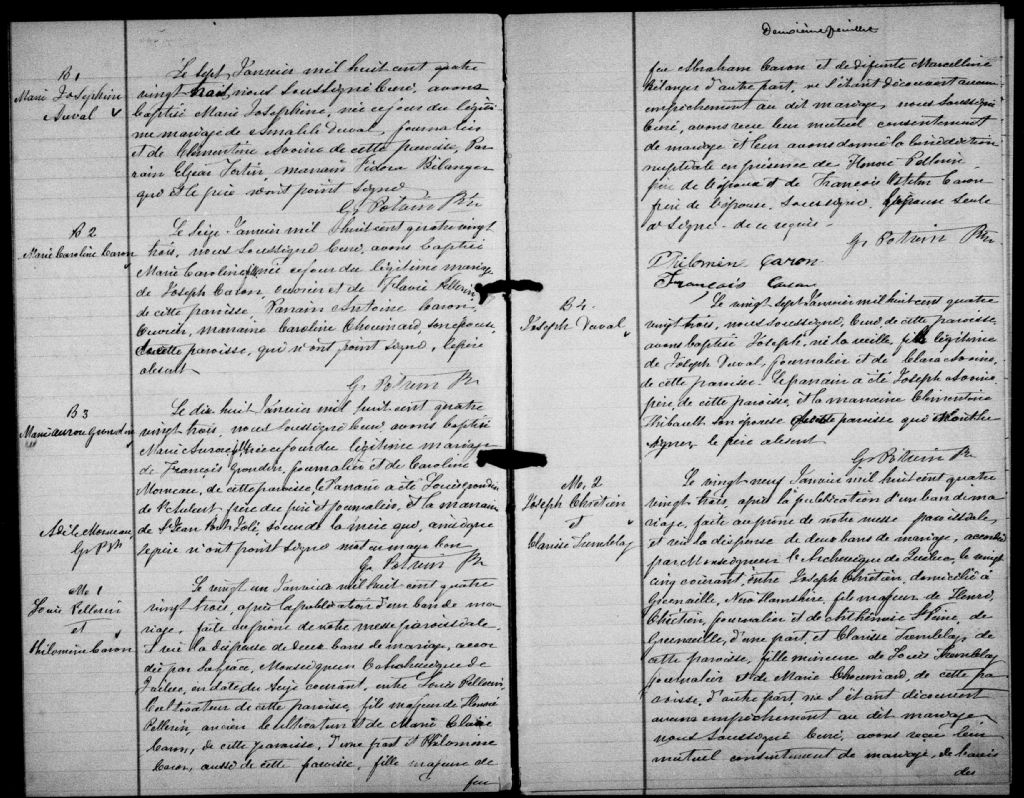 B 1
Marie Josephine
Duval
Le sept Janvier mil huit cent quatre
vingt trois, nous soussigné Curé, avons
baptisé Marie Josephine, née ce jour du légiti
me mariage de Duval, journalier
et de Clementine Avoine de cette paroisse, Par
rain Elzear Fortin, marraine Bélanger
qui et le père n'ont point signé
B 2
Marie Caroline Caron
Le Seize Janvier mil huit cent quatre vingt
trois, nous soussigné Curé, avons baptisé
Marie Caroline, née ce jour du légitime mariage
de Joseph Caron, ouvrier et de Flavie Pellerin,
de cette paroisse, Parrain Antoine Caron
marraine Caroline Chouinard son epouse,
de cette paroisse, qui n'ont point signé, le père
absent
B 3
Marie Grondin
Le dix huit Janvier mil huit cent quatre
vingt trois, nous soussigné Curé, avons baptisé
Marie née ce jour du légitime mariage
de François Grondin, journalier et de Caroline
Morneau, de cette paroisse, le Parrain a été Louis Grondin
de St Aubert, frère du père et journalier, et la marraine
de St Jean Port Joli, soeur de la mère qui, ainsi que
le père n'ont point signé
Adèle Morneau
M. 1
Louis Pellerin
et
Philomène Caron
Le vingt un Janvier mil huit cent quatre
vingt trois, après la publication d'un ban de ma
riage, faite au prône de notre messe paroissiale
et vu la dispense de deux bans de mariage, accor
dée par sa Grâce, Monseigneur l'Archevêque de
Québec, en date du Seize courant, entre Louis Pellerin,
Cultivateur de cette paroisse, fils majeur de Honoré
Pellerin, ancien cultivateur et de Marie Claire
Caron, de cette paroisse, d'une part et Philomène
Caron, aussi de cette paroisse, fille majeure de
feu
Deuxième feuillet
feu Abraham Caron et de défunte Marcelline
Bélanger d'autre part, ne s'étant découvert aucun
empêchement au dit mariage, nous soussigné
Curé, avons reçu leur mutuel consentement
de mariage et leur avons donné la bénédiction
nuptiale en présence de Honoré Pellerin
père de l'époux et de François Caron
frère de l'épouse, soussigné, l'épouse seule
a signé de ce requis
Philomène Caron
François Caron
B 4
Joseph Duval
Le vingt sept Janvier mil huit cent quatre
vingt trois, nous soussigné, Curé, de cette paroisse,
avons baptisé Joseph, né la veille, fils légitime
de Joseph Duval, journalier et de Clara Avoine,
de cette paroisse. Le parrain a été Joseph Avoine,
père, de cette paroisse, et la marraine Clementine
Thibault son épouse de cette paroisse qui
signer, le père absent
M. 2
Joseph Chrétien
et
Clarisse Tremblay
Le vingt neuf Janvier mil huit cent quatre
vingt trois, après la publication d'un ban de ma
riage, faite au prône de notre messe paroissiale
et vu la dispense de deux bans de mariage, accordée
par Monseigneur l'Archevêque de Québec, le vingt
cinq courant, entre Joseph Chrétien, domicilié à
Greenville, New Hamshire, fils majeur de Henri
Chrétien, journalier et de Arthémise St Pierre, de
Greenville, d'une part, et Clarisse Tremblay, de
cette paroisse, fille mineure de Louis Tremblay
journalier et de Marie Chouinard, de cette pa
roisse, d'autre part, ne s'étant découvert
aucun empêchement au dit mariage,
nous soussigné Curé, avons reçu leur
mutuel consentement de mariage, de l'avis
des